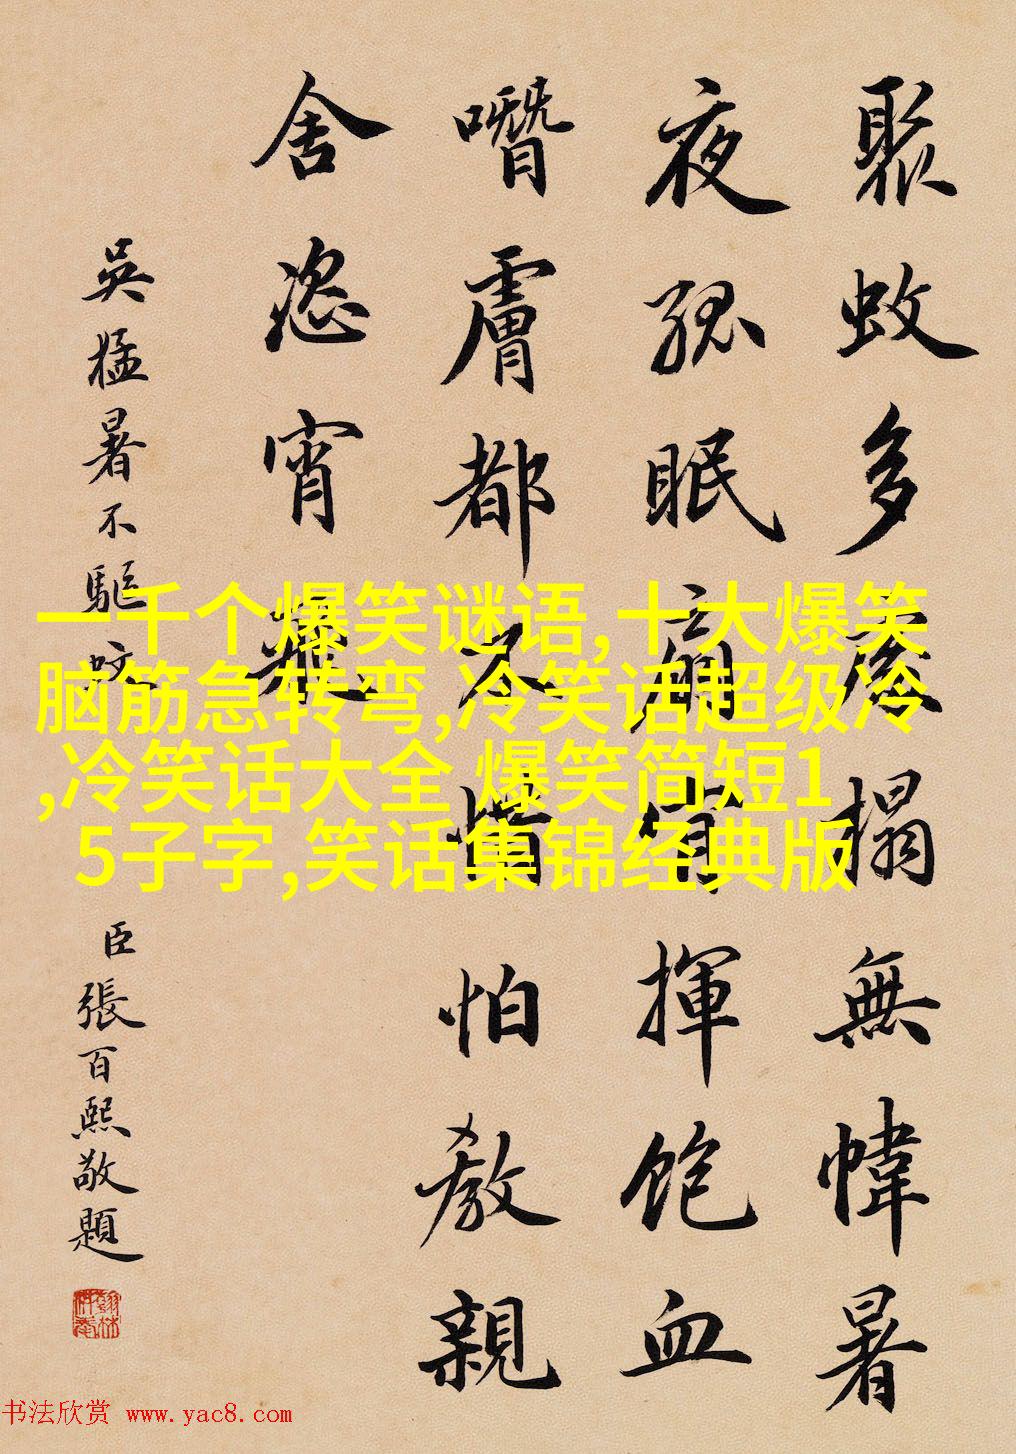 聚蚊多處榻無幃暑
夜孤眠扇肯揮飽血
噆膚都不惜怕教親
舍恣宵飛
吳猛暑不驅蚊
臣張百熙敬題
一千个爆笑谜语,十大爆笑
脑筋急转弯,冷笑话超级冷
,冷笑话大全 爆笑简短1
5子字,笑话集锦经典版
书法欣赏 www.yac8.com